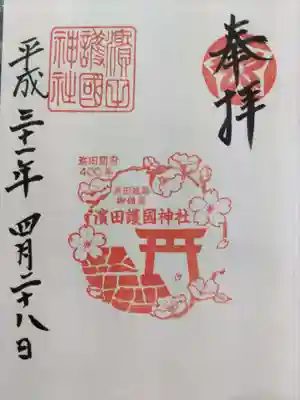 奉拝
濱田
護國
神社
浜田開府
400年
浜田城跡
御鎮座
濱田護國神社
平成三十一年四月二十八日